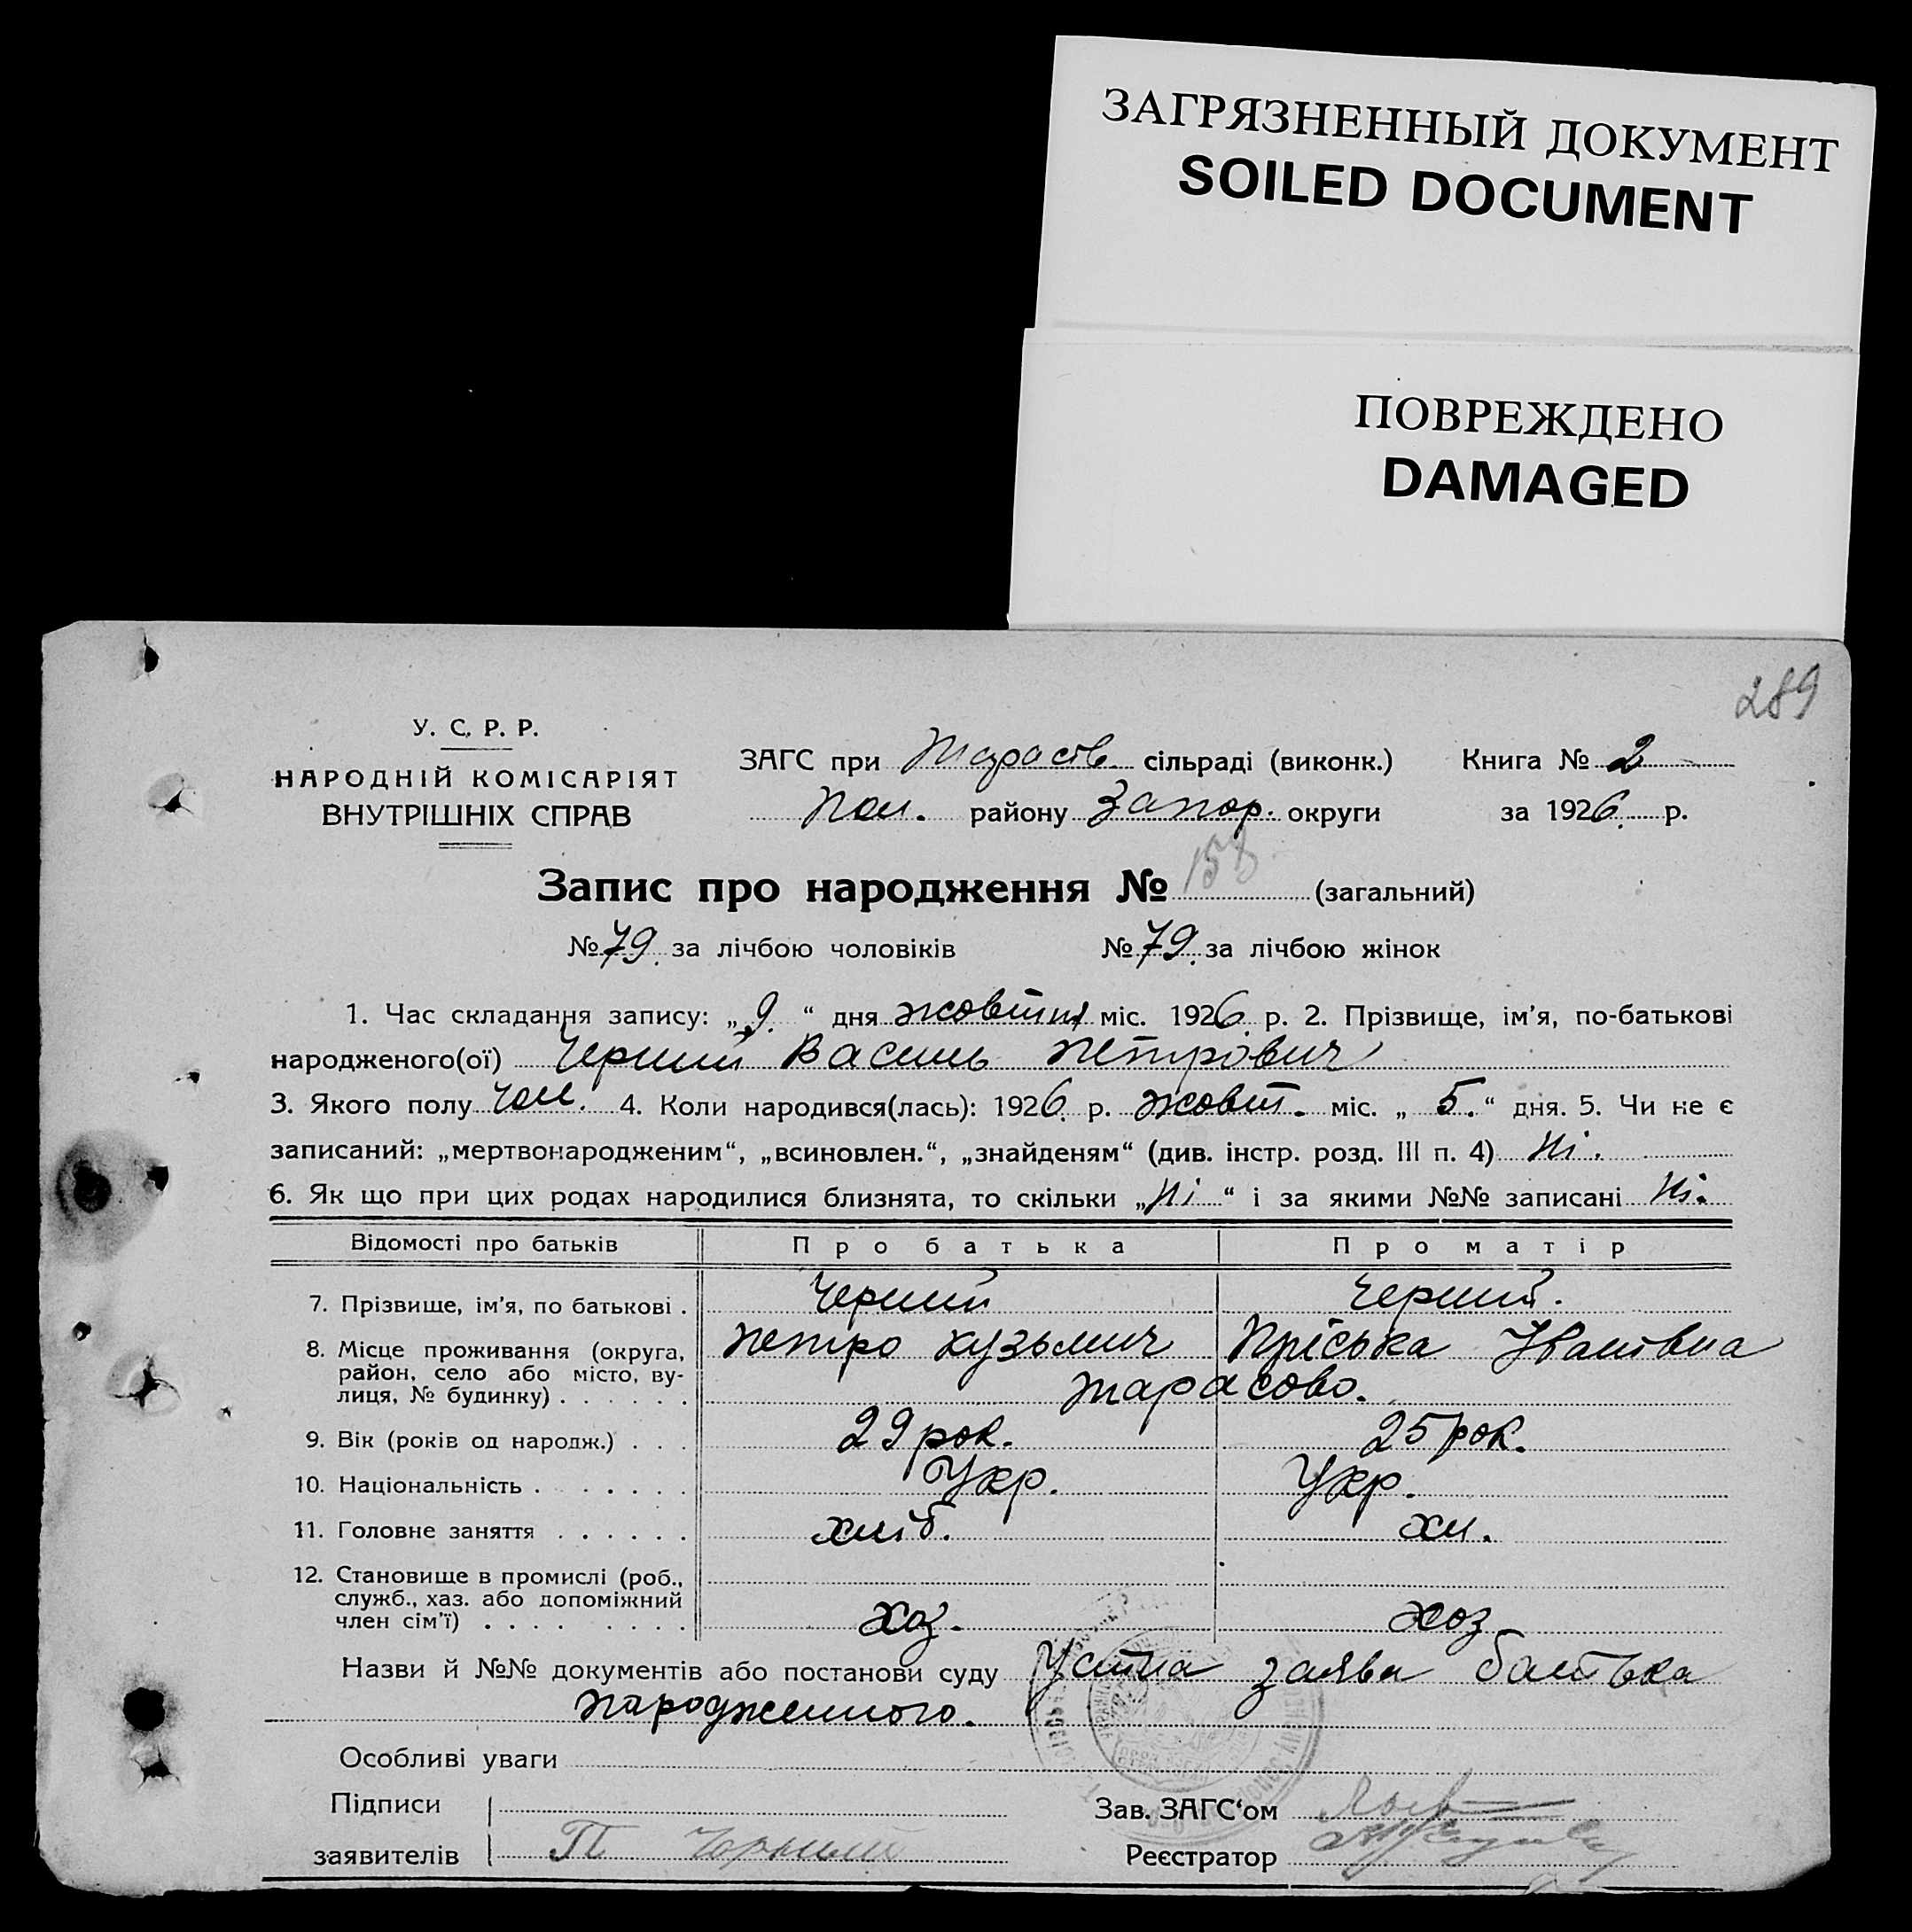 ЗАГРЯЗНЕННЫЙ ДОКУМЕНТ
SOILED DOCUMENT
ПОВРЕЖДЕНО
DAMAGED
289
У. С. Р. Р.
НАРОДНІЙ КОМІСАРІЯТ
ВНУТРІШНІХ СПРАВ
ЗАГС при Тарасів. сільраді (виконк.) Книга № 2
Пол. району Запор. округи за 1926. р.
Запис про народження № 158 (загальний)
№ 79. за лічбою чоловіків № 79. за лічбою жінок
1. Час складання запису: „ 9. “ дня жовтня міс. 1926 р. 2. Прізвище, ім’я, по-батькові
народженого(ої) Черний Василь Петрович
3. Якого полу чол. 4. Коли народився(лась): 1926. р. жовт. міс. „ 5. “ дня. 5. Чи не є
записаний: „мертвонародженим“, „всиновлен.“, „знайденям“ (див. інстр. розд. III п. 4) Ні.
6. Як що при цих родах народилися близнята, то скільки „Ні“ і за якими №№ записані Ні.
Відомості про батьків Про батька Про матір
7. Прізвище, ім’я, по батькові . Черний Черний.
8. Місце проживання (округа, Петро Кузьмич Пріська Іванівна
район, село або місто, ву-
лиця, № будинку) . . . . . . Тарасово.
9. Вік (років од народж.) . . . 29 рок. 25 рок.
10. Національність . . . . . . Укр. Укр.
11. Головне заняття . . . . . . хліб. хл.
12. Становище в промислі (роб.,
служб., хаз. або допоміжний
член сім’ї) . . . . . . . . хоз. хоз
Назви й №№ документів або постанови суду Устна заява батька
народженного.
Особливі уваги
Підписи Зав. ЗАГС‘ом
заявителів П Чорний Реєстратор